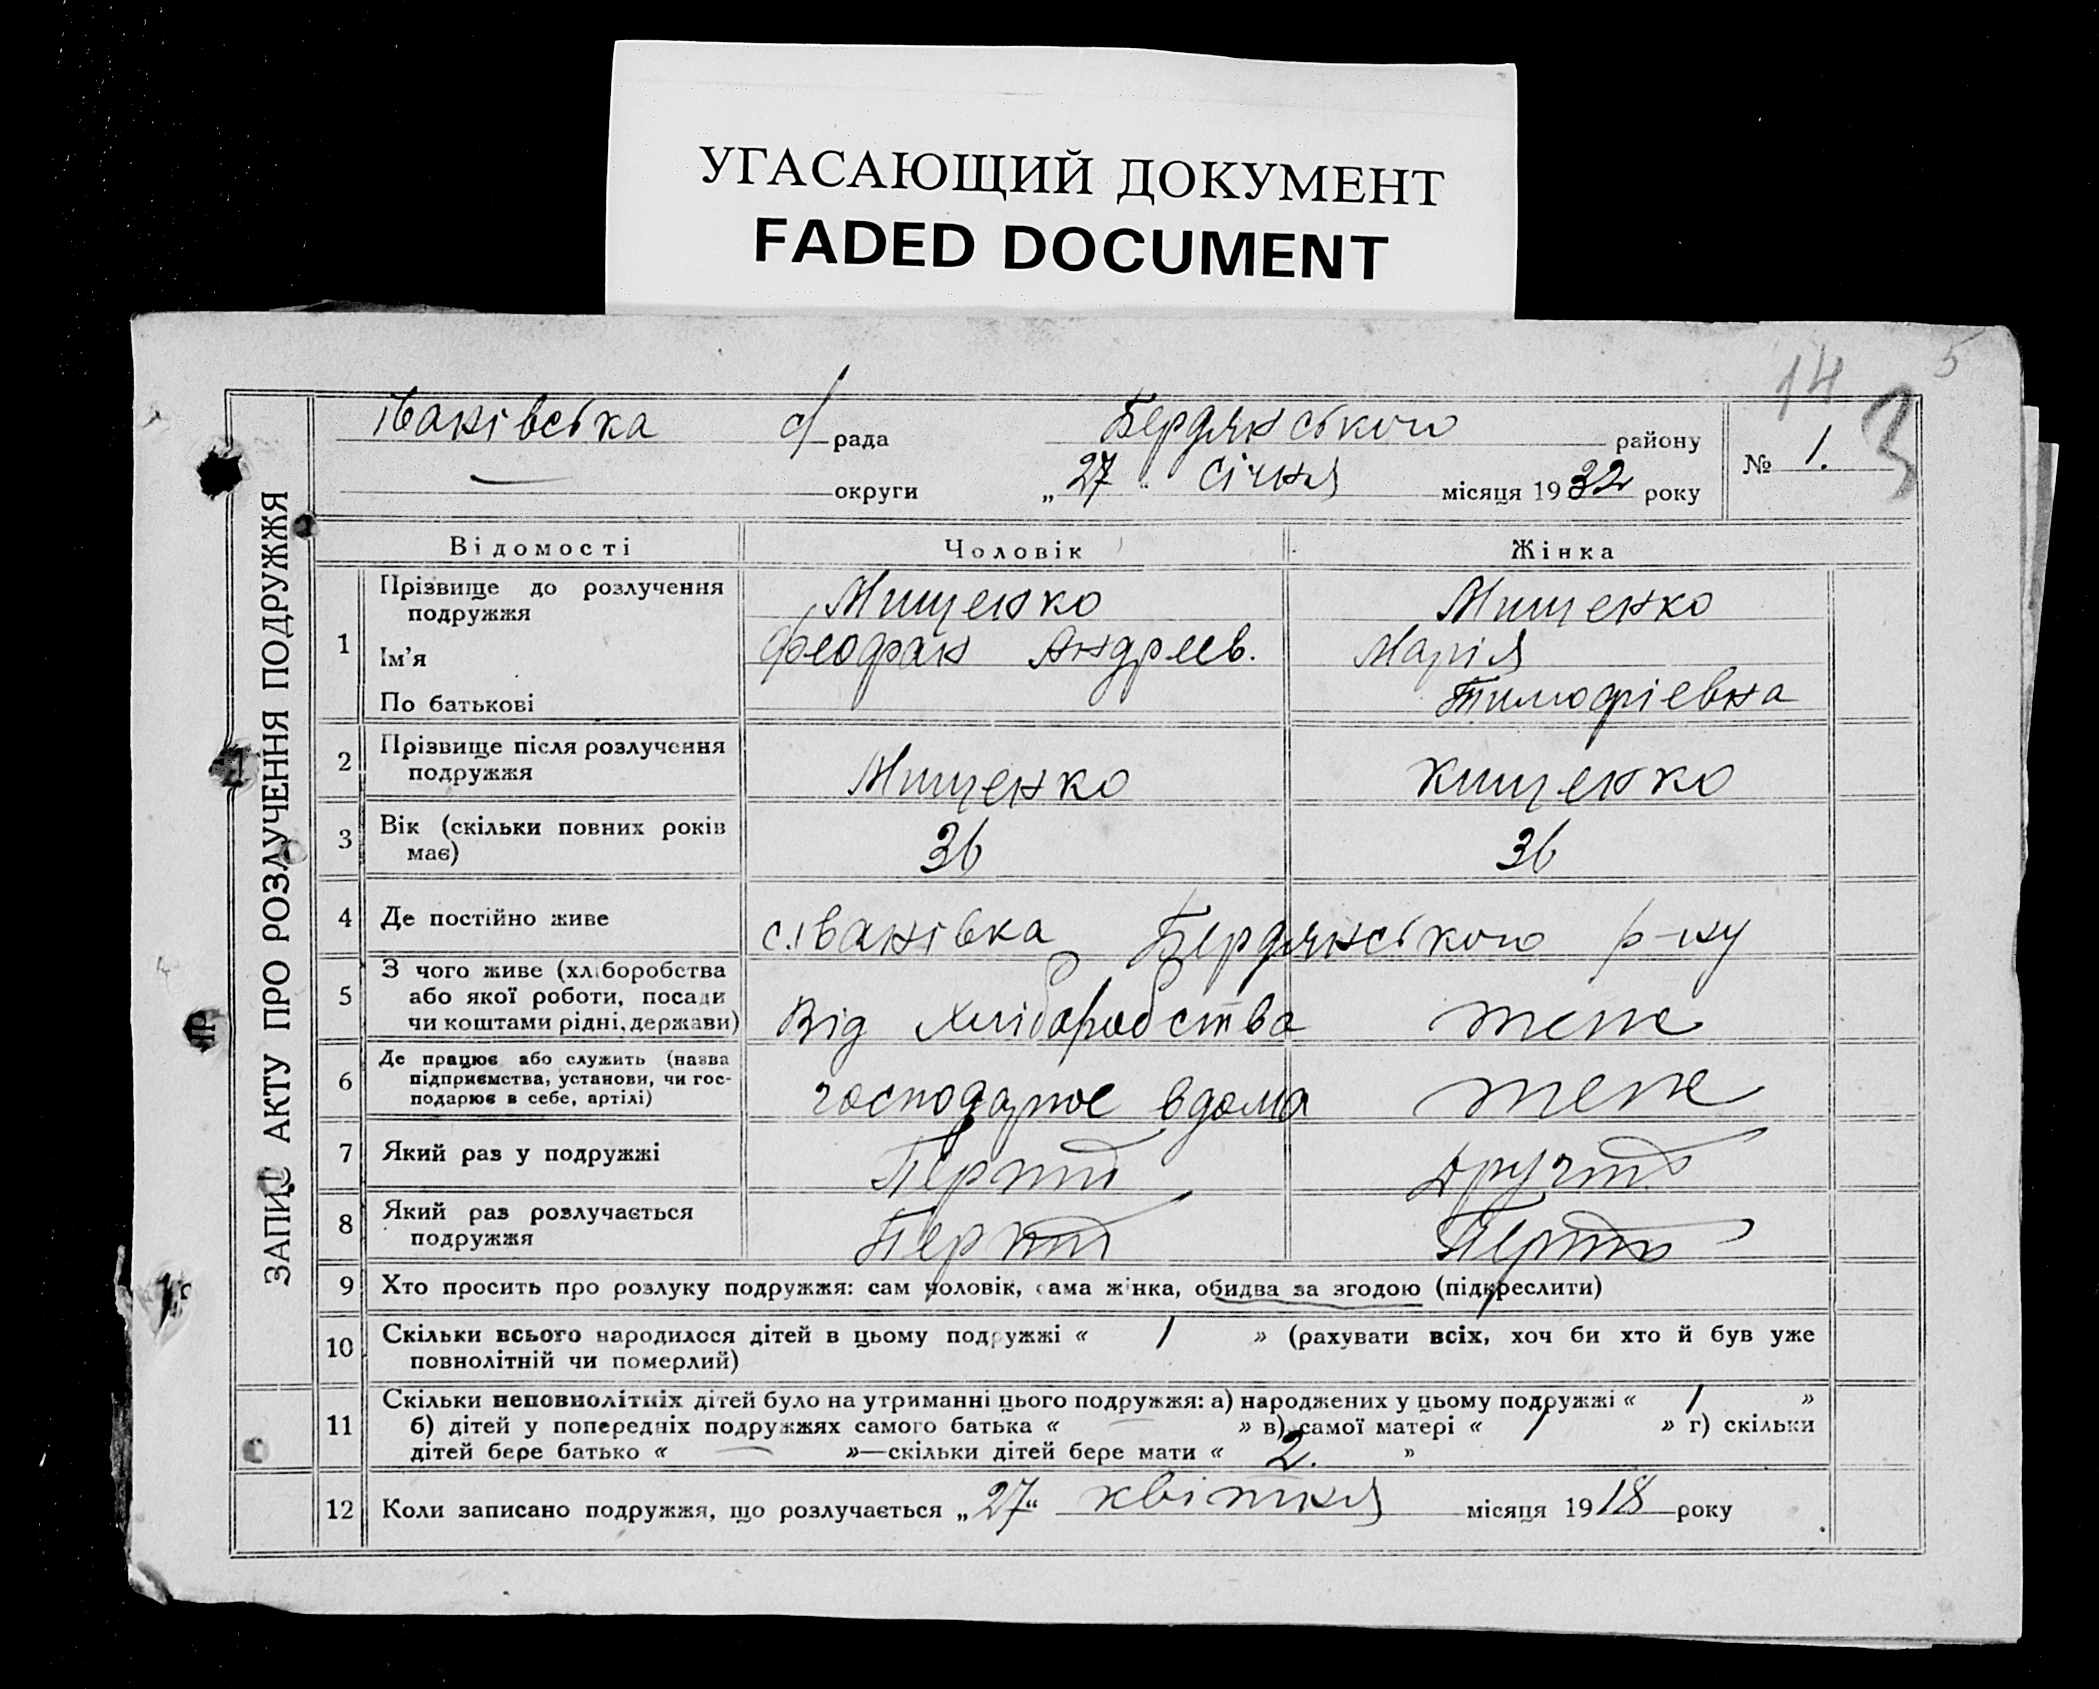 УГАСАЮЩИЙ ДОКУМЕНТ
FADED DOCUMENT
5
14
3
ЗАПИС АКТУ ПРО РОЗЛУЧЕННЯ ПОДРУЖЖЯ
іванівська с/рада Бердянського району
— округи „27“ січня місяця 1932 року
№ 1.
Відомості Чоловік Жінка
1 Прізвище до розлучення подружжя Мищенко Мищенко
Ім'я феофан Андреев. Марія
По батькові Тимофіевна
2 Прізвище після розлучення
подружжя Мищенко Кищенко
3 Вік (скільки повних років
має) 36 36
4 Де постійно живе с.Іванівка Бердянського р-ну
5 З чого живе (хліборобства
або якої роботи, посади
чи коштами рідні, держави) Від Хліборобства теж
6 Де працює або служить (назва
підприємства, установи, чи гос-
подарює в себе, артілі) господарює вдома теж
7 Який раз у подружжі
8 Який раз розлучається
подружжя
9 Хто просить про розлуку подружжя: сам чоловік, сама жінка, обидва за згодою (підкреслити)
10 Скільки всього народилося дітей в цьому подружжі « 1 » (рахувати всіх, хоч би хто й був уже
повнолітній чи померлий)
11 Скільки неповнолітніх дітей було на утриманні цього подружжя: а) народжених у цьому подружжі « 1 »
б) дітей у попередніх подружжях самого батька « — » в) самої матері « 1 » г) скільки
дітей бере батько « — »—скільки дітей бере мати « 2. »
12 Коли записано подружжя, що розлучається „27“ квітня місяця 1918 року